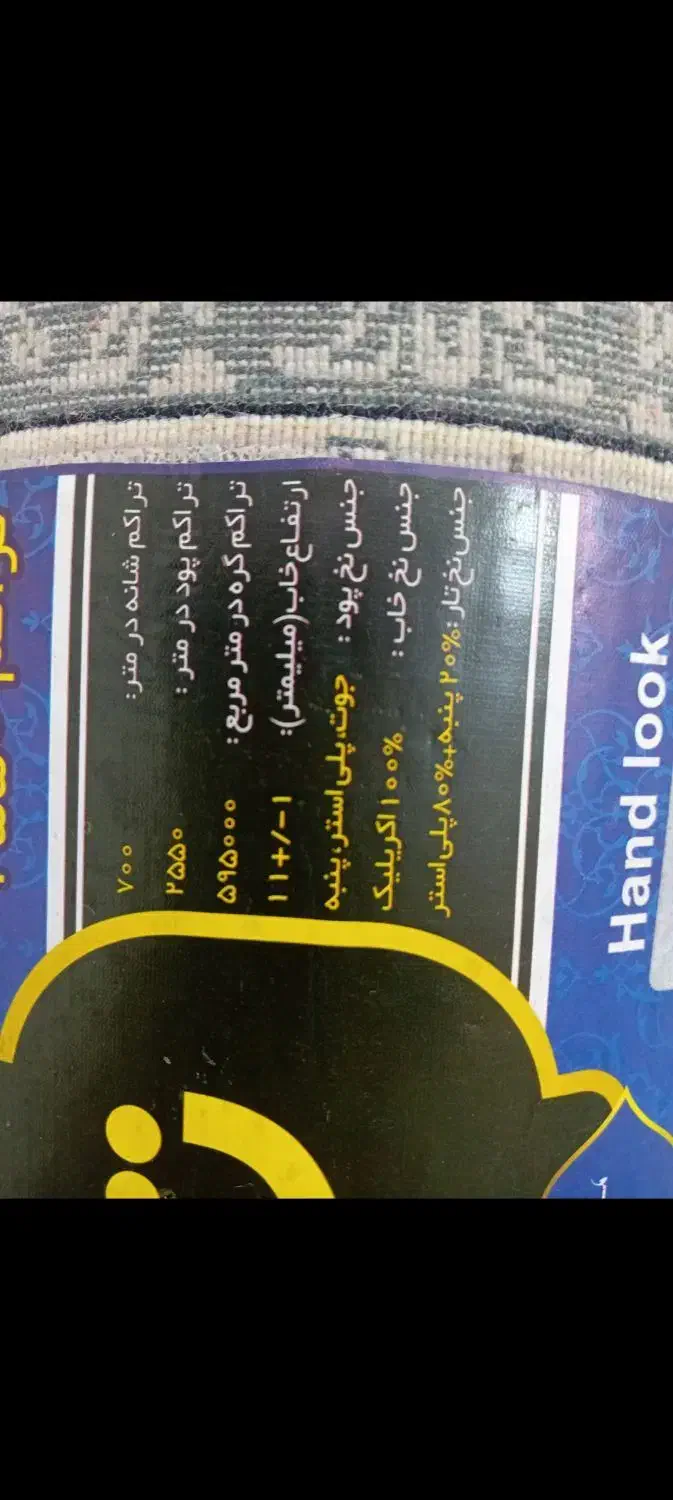 تراکم شانه در متر: ۷۰۰
تراکم پود در متر : ۲۵۵۰
تراکم گره در متر مربع : ۵۹۵۰۰۰
ارتفاع خاب(میلیمتر): ۱۱+/-۱
جنس نخ پود : جوت، پلی استر، پنبه
جنس نخ خاب : ۱۰۰% اکریلیک
جنس نخ تار: ۲۰% پنبه+۸۰% پلی استر
Hand look